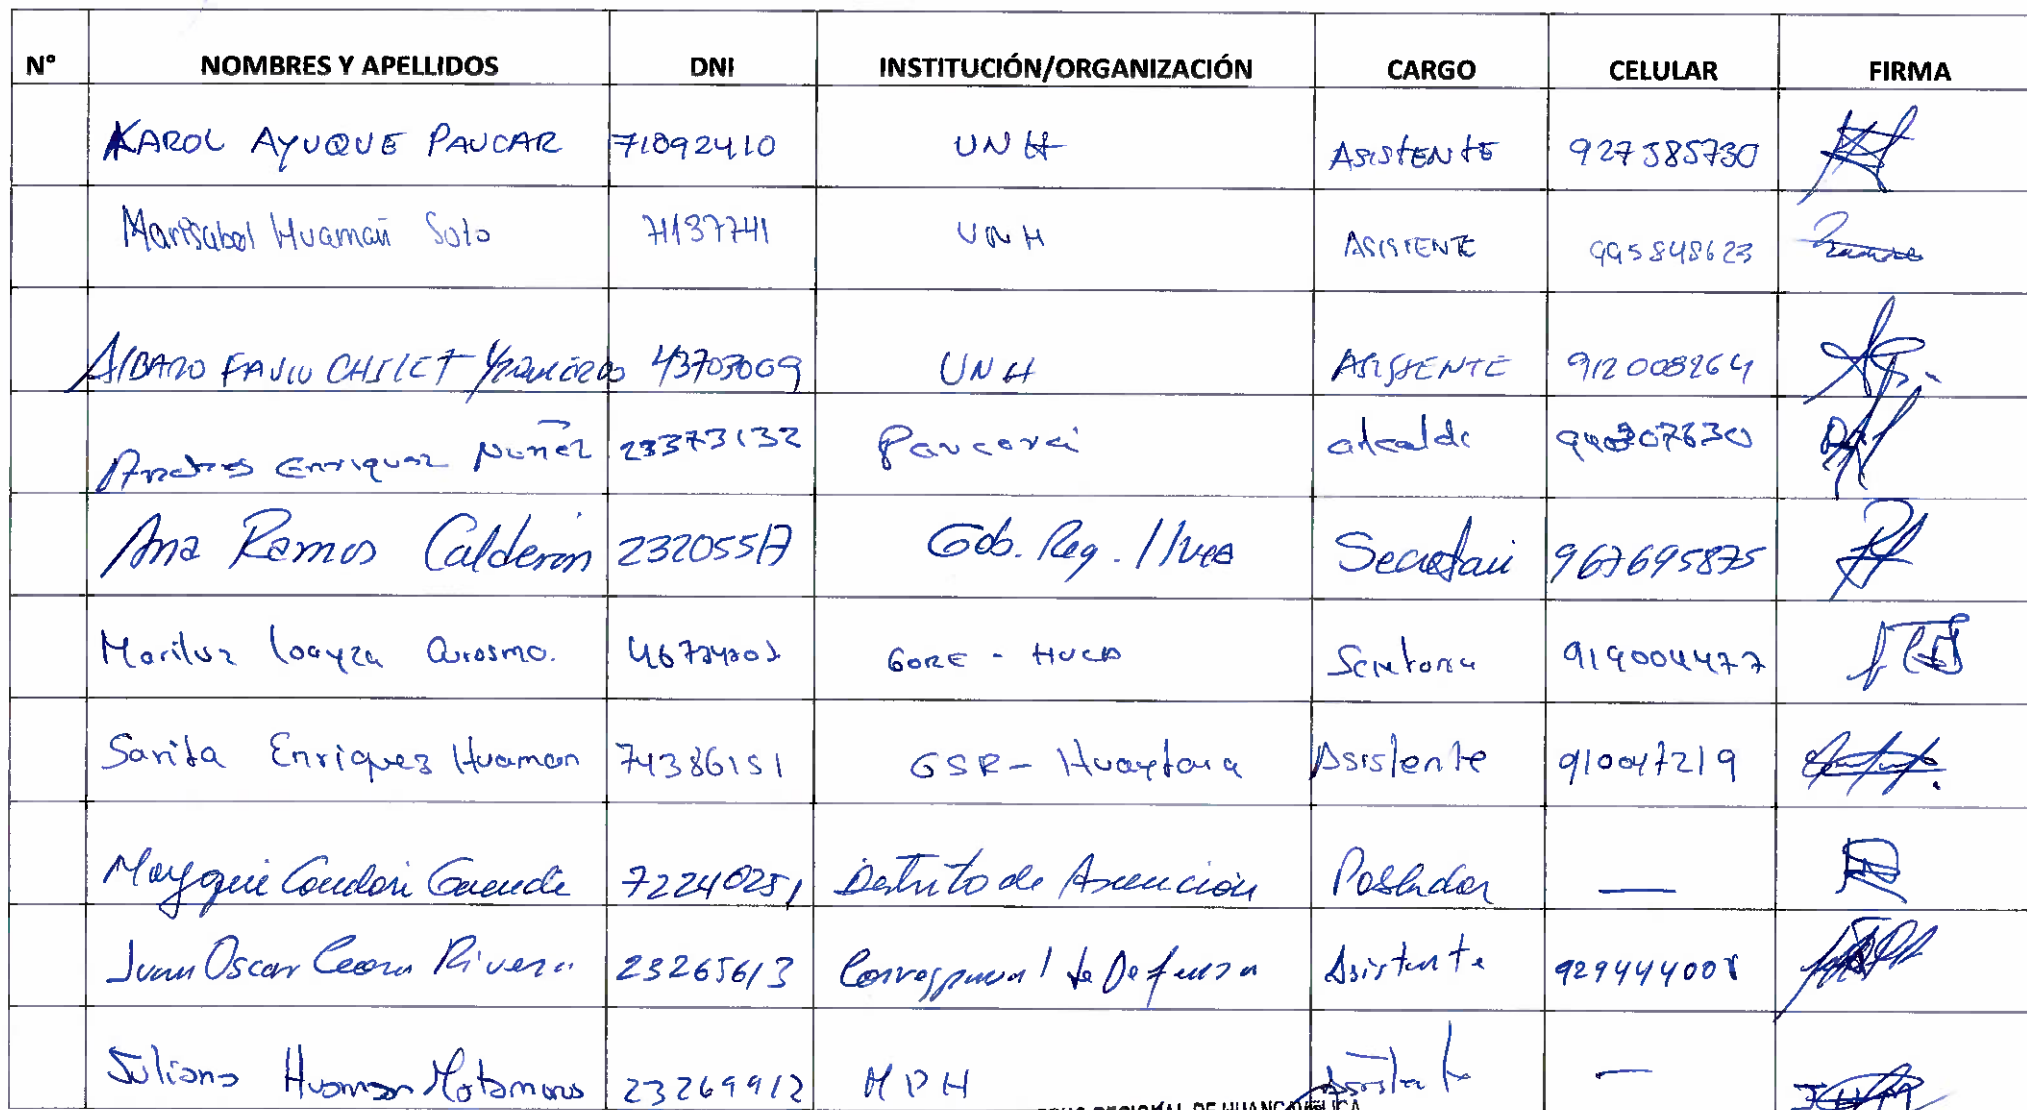 N° NOMBRES Y APELLIDOS DNI INSTITUCIÓN/ORGANIZACIÓN CARGO CELULAR FIRMA
KAROL AYUQUE PAUCAR 71092410 UNH ASISTENTE 927385730
Marisabel Huamán Soto 71137741 UNH ASISTENTE 995848623
AlBARO FAVIO CHILET 43703069 UNH ASISTENTE 912008264
Andres Enriquez Nuñez 23373132 Paucará alcalde
Ana Ramos Calderon 23205517 Gob. Reg. Hvca Secretari 967695875
Mariluz loayza GORE - HVCA Secretaria 919004477
Sarita Enriquez Huaman 74386151 GSR - Huaytara Asistente 910047219
Condori 72240251 Distrito de Ascención Poblador —
Juan Oscar Ccora Rivera 23265613 Asistente 929444008
Juliana Huaman Matamoros 23269912 MPH Asistente —
REGIONAL DE HUANCAVELICA